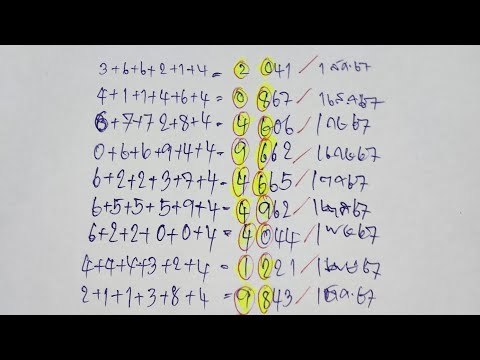 3+6+6+2+1+4= 2 041 / 1 ส.ค.67
4+1+1+4+6+4= 0 867 / 16 ส.ค 67
6+7+7 2+8+4= 4 606 / 1 ก.ย 67
0+6+6+9+4+4= 9 662 / 16 ก.ย 67
6+2+2+3+7+4= 4 665 / 1 ต.ค 67
6+5+5+5+9+4= 4 962 / 16 ต.ค 67
6+2+2+0+0+4= 4 044 / 1 พ.ย 67
4+4+4+3+2+4= 1 221 / 16 พ.ย 67
2+1+1+3+8+4= 9 843 / 1 ธ.ค. 67